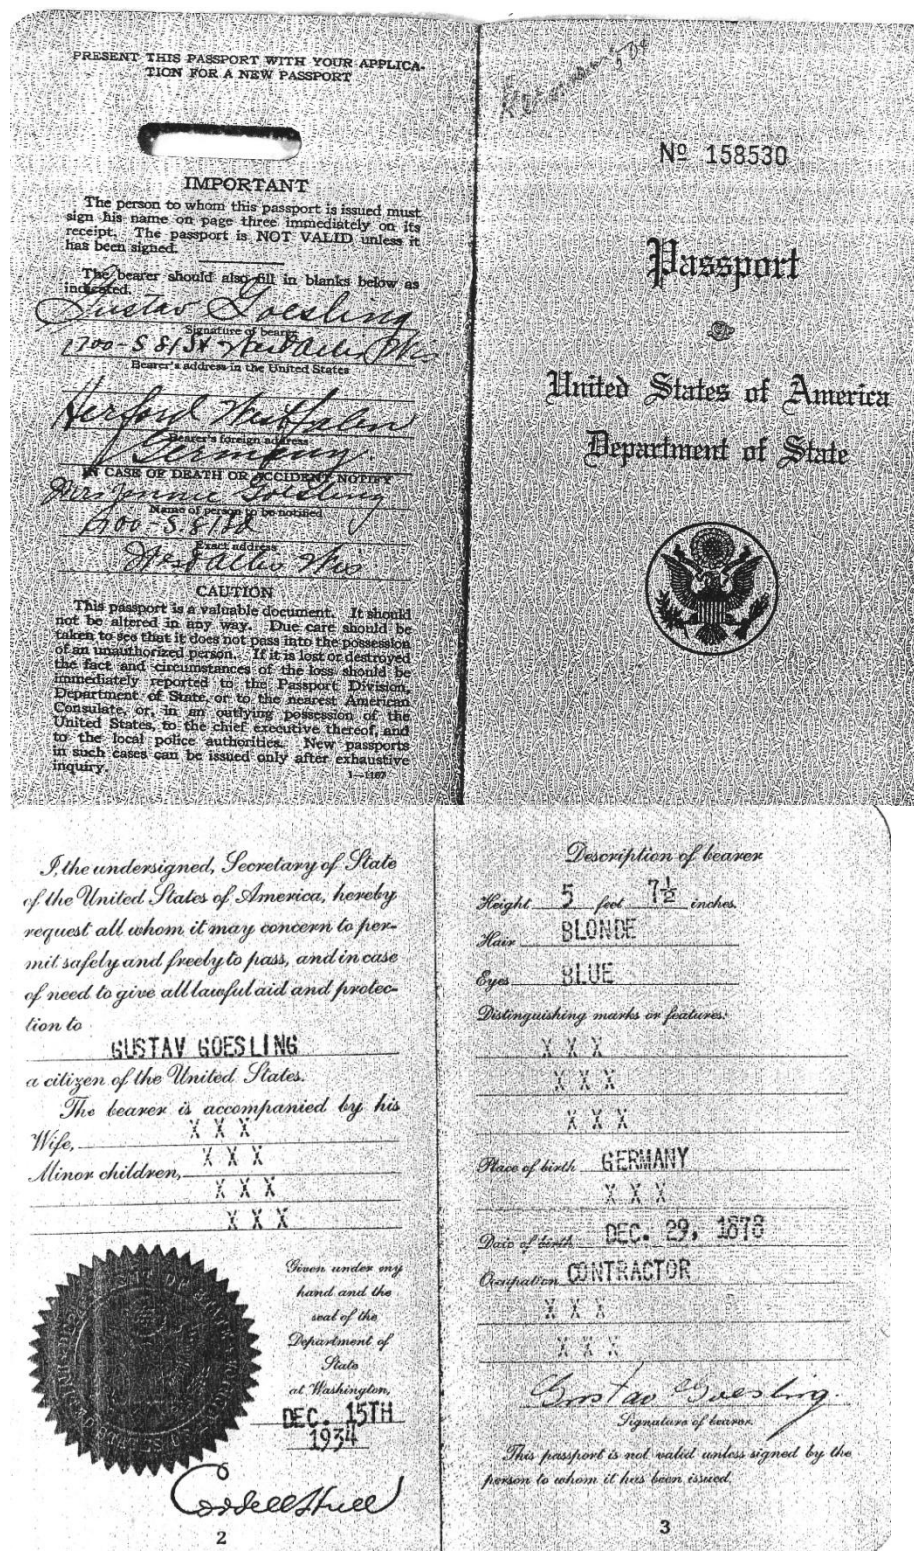 PRESENT THIS PASSPORT WITH YOUR APPLICA-
TION FOR A NEW PASSPORT
IMPORTANT
The person to whom this passport is issued must
sign his name on page three immediately on its
receipt. The passport is NOT VALID unless it
has been signed.
The bearer should also fill in blanks below as
indicated.
Gustav Goesling
Signature of bearer
1700-S 81St West Allis Wis
Bearer's address in the United States
Herford Westfalen
Bearer's foreign address
Germany.
IN CASE OF DEATH OR ACCIDENT NOTIFY
Mrs Jennie Goesling
Name of person to be notified
1700-S. 81St
Exact address
West Allis Wis
CAUTION
This passport is a valuable document. It should
not be altered in any way. Due care should be
taken to see that it does not pass into the possession
of an unauthorized person. If it is lost or destroyed
the fact and circumstances of the loss should be
immediately reported to the Passport Division,
Department of State, or to the nearest American
Consulate, or, in an outlying possession of the
United States, to the chief executive thereof, and
to the local police authorities. New passports
in such cases can be issued only after exhaustive
inquiry.
1—1167
Nº 158530
Passport
United States of America
Department of State
I, the undersigned, Secretary of State
of the United States of America, hereby
request all whom it may concern to per-
mit safely and freely to pass, and in case
of need to give all lawful aid and protec-
tion to
GUSTAV GOESLING
a citizen of the United States.
The bearer is accompanied by his
Wife, X X X
Minor children, X X X
X X X
X X X
Given under my
hand and the
seal of the
Department of
State
at Washington,
DEC. 15TH
1934
Cordell Hull
2
Description of bearer
Height 5 feet 7½ inches.
Hair BLONDE
Eyes BLUE
Distinguishing marks or features:
X X X
X X X
X X X
Place of birth GERMANY
X X X
Date of birth DEC. 29, 1878
Occupation CONTRACTOR
X X X
X X X
Gustav Goesling.
Signature of bearer.
This passport is not valid unless signed by the
person to whom it has been issued.
3